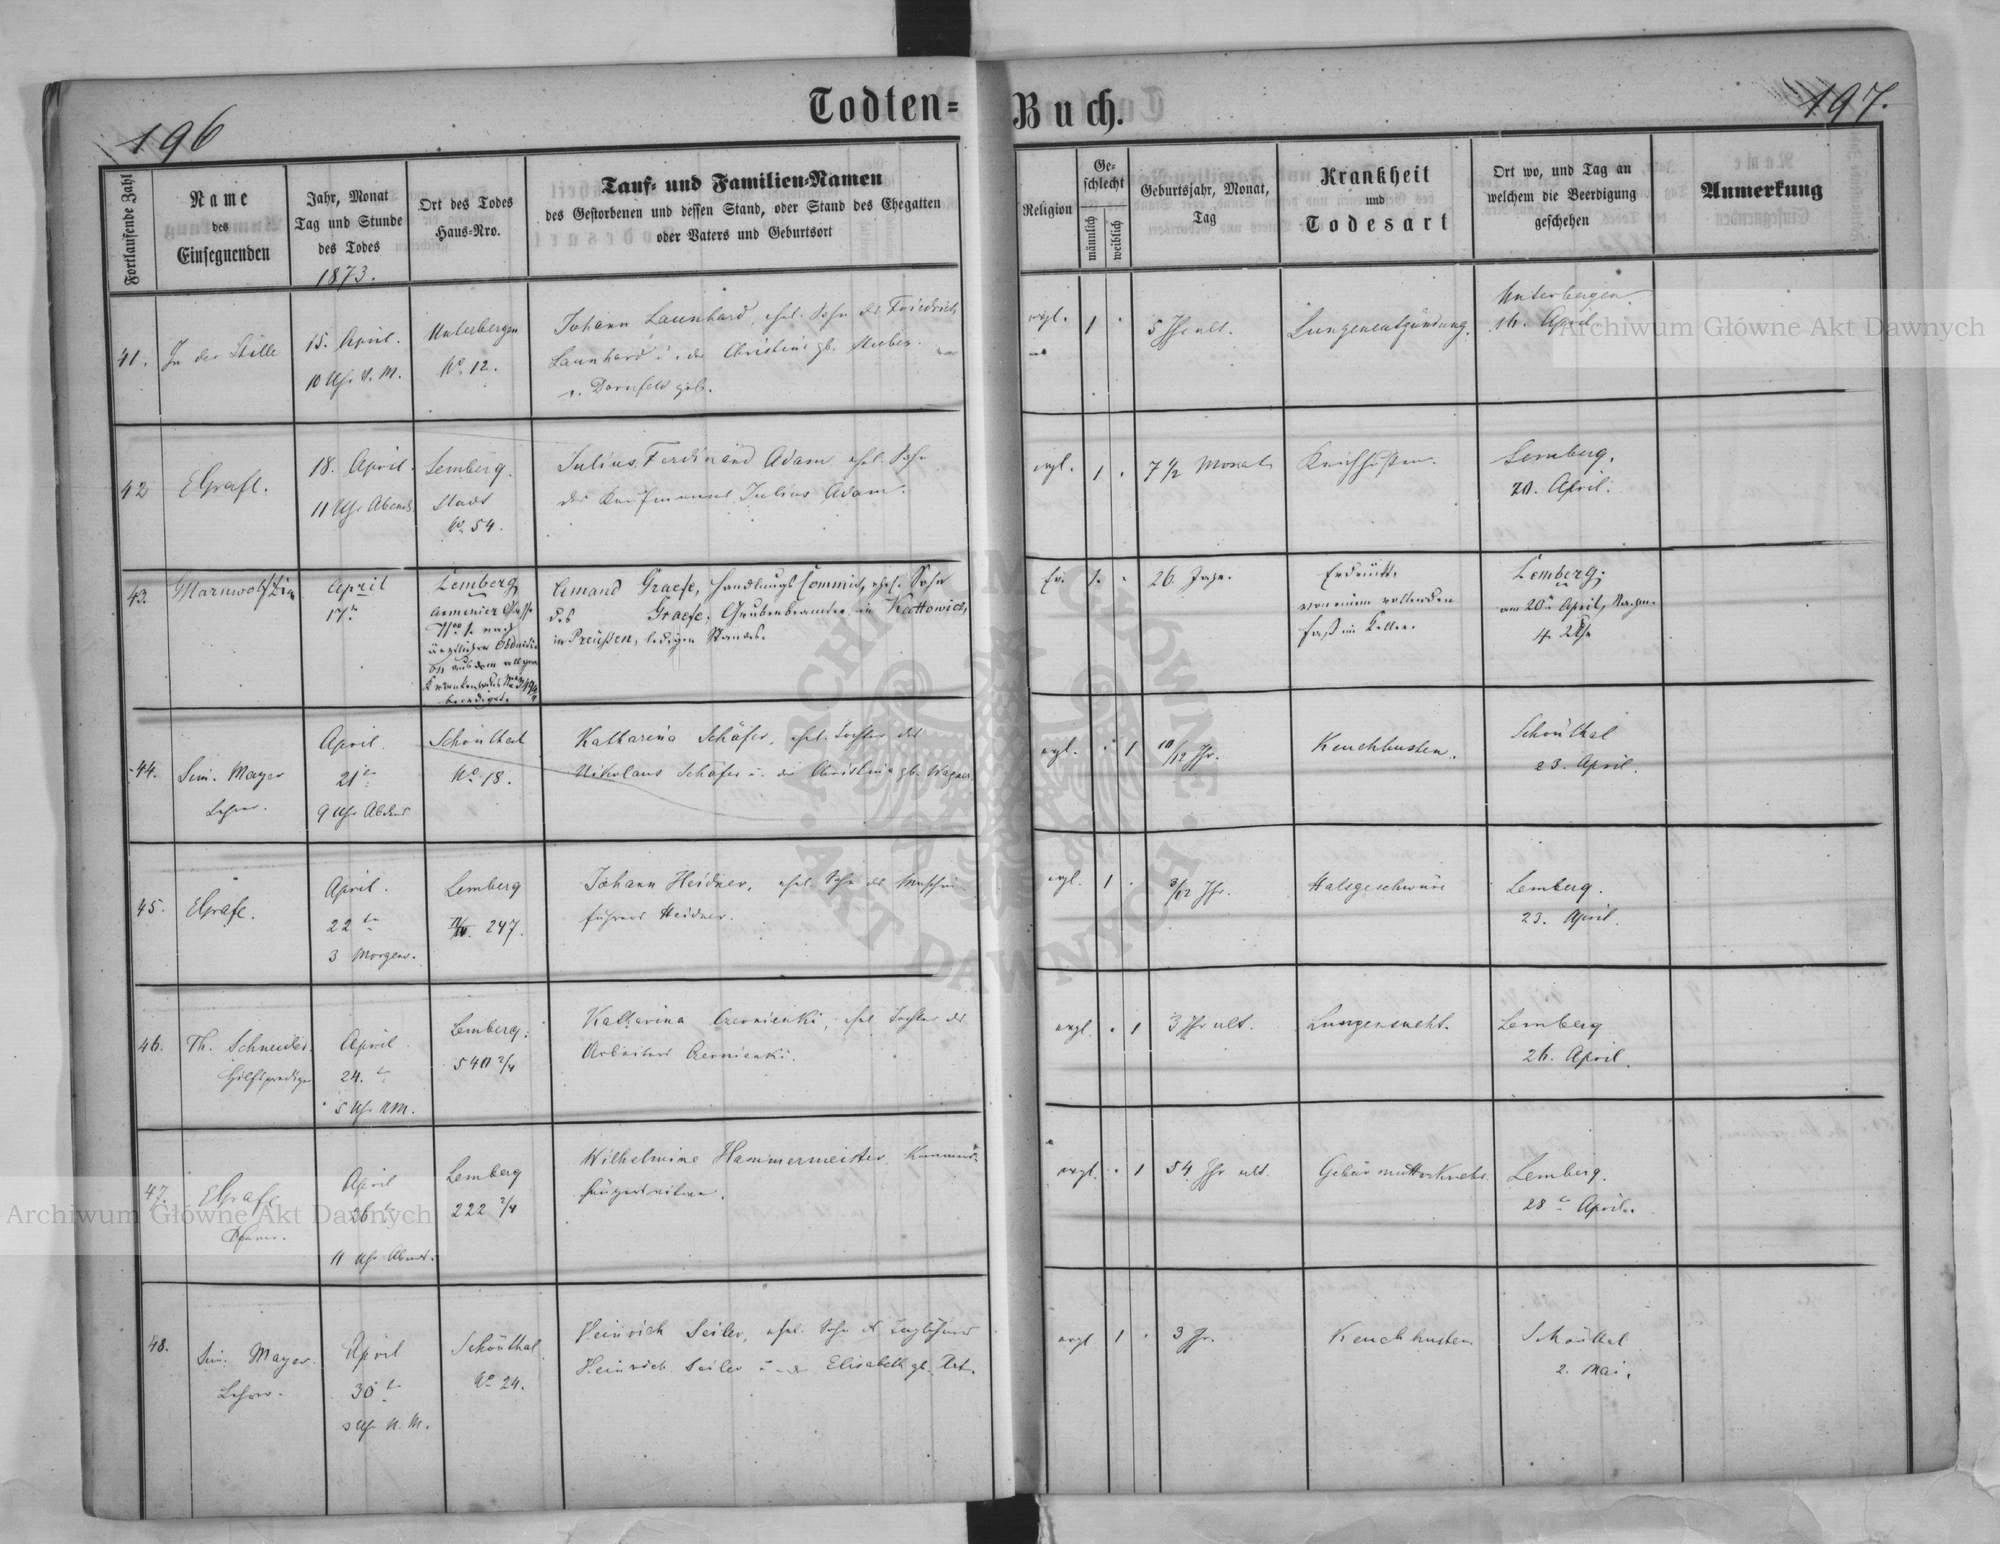 196
Todten=
Buch.
197.
Fortlaufende Zahl
Name
des
Einsegnenden
Jahr, Monat
Tag und Stunde
des Todes
1873.
Ort des Todes
Haus-Nro.
Tauf= und Familien=Namen
des Gestorbenen und dessen Stand, oder Stand des Ehegatten
oder Vaters und Geburtsort
Religion
Ge-
schlecht
männlich
weiblich
Geburtsjahr, Monat,
Tag
Krankheit
und
Todesart
Ort wo, und Tag an
welchem die Beerdigung
geschehen
Anmerkung
41.
In der Stille
15. April.
10 Uhr V. M.
Unterbergen
No. 12.
Johann Launhard, ehel. Sohn des Friedrich
Launhard u. der Christine gb.
v. Dornfeld geb.
evgl.
1
5 Jhr alt.
Lungenentzündung.
Unterbergen.
16. April
42
EGrafe.
18. April.
11 Uhr Abends.
Lemberg.
Stadt
No. 54.
Julius Ferdinand Adam ehel. Sohn
des Kaufmannes Julius Adam.
evgl.
1
7 1/2 Monate
Keichhusten.
Lemberg.
20. April.
43.
April
17n
Lemberg,
Armenier Gasse
No 1. nach
ärztlicher Obduktion
aus dem allgem.
Amand Graefe, Handlungs Commis, ehel. Sohn
des Graefe, Grubenbeamten in Kattowicz,
in Preußen, ledigen Standes.
Ev.
1.
26 Jahre.
Erdrückt
von einem rollenden
Faß im Keller.
Lemberg;
am 20n April, Nachm.
4 Uhr
44.
Sim. Mayer
Lehrer.
April.
21n
9 Uhr Abends
Schönthal
No. 18.
Katharina Schäfer, ehel. Tochter des
Nikolaus Schäfer u. der Christine gb. Wagner.
evgl.
1
10/12 Jhr.
Keuchhusten.
Schönthal
23. April.
45.
EGrafe.
April.
22n
3 Morgens.
Lemberg
247.
Johann Heidner, ehel. Sohn des Maschin-
führers Heidner.
evgl.
1
3/12 Jhr.
Halsgeschwüre
Lemberg.
23. April.
46.
Th. Schneider.
Hilfsprediger
April.
24.
5 Uhr NM.
Lemberg.
540 2/4
Katharina Czernienki, ehel. Tochter des
Arbeiters Czernienki.
evgl.
1
3 Jhr alt.
Lungensucht.
Lemberg
26. April.
47.
EGrafe
Pfarrer.
April
26
11 Uhr Abends.
Lemberg
222 2/4
Wilhelmine Hammermeister
evgl.
1
54 Jhr alt.
Gebärmutterkrebs.
Lemberg.
28 April.
48.
Sim. Mayer.
Lehrer.
April
30
3 Uhr N. M.
Schönthal.
No 24.
Heinrich Seiler, ehel. Sohn des Taglöhners
Heinrich Seiler u. der Elisabeth gb. Art.
evgl
1
3 Jhr.
Keuchhusten
Schönthal
2. Mai.
Archiwum Główne Akt Dawnych
Archiwum Główne Akt Dawnych
ARCHIWUM GŁÓWNE · AKT DAWNYCH ·